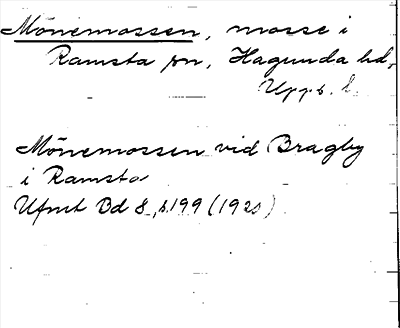 Mönemossen, mosse i
Ramsta sn, Hagunda hd,
Upps. l.
Mönemossen vid Bragby
i Ramsta
Ufmt Bd 8, s 199 (1920)